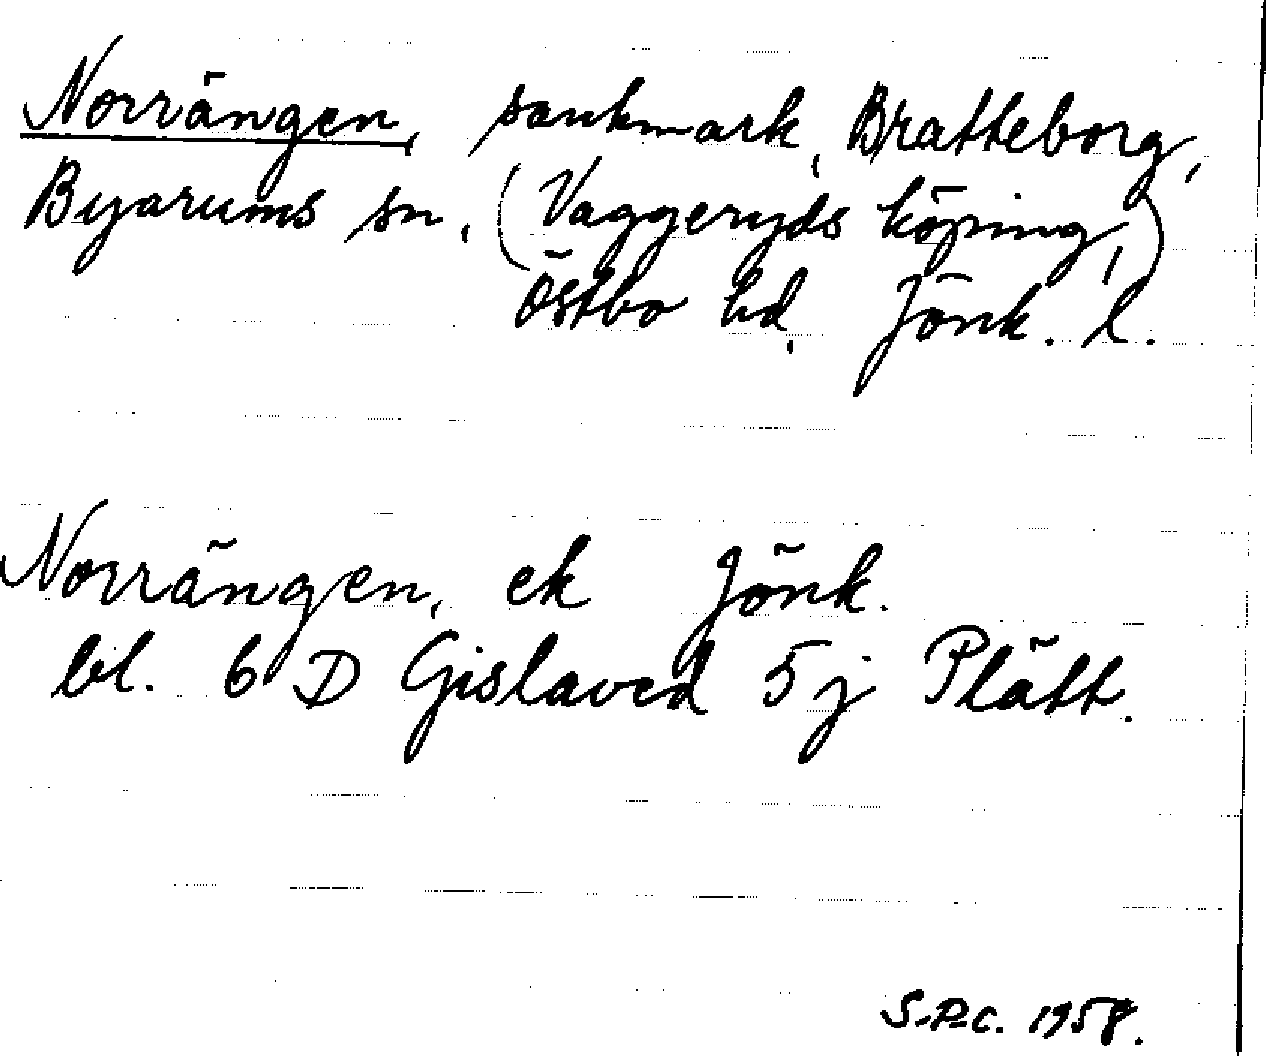 Norrängen, sankmark, Bratteborg,
Byarums sn, (Vaggeryds köping,)
Östbo hd, Jönk. l.
Norrängen, ek Jönk.
bl. 6 D Gislaved 5 j Plätt.
S-P-C. 1958.